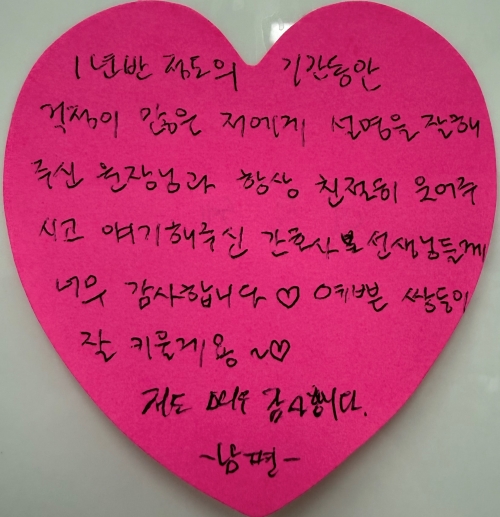 1년반 정도의 기간동안
걱정이 많은 저에게 설명을 잘해
주신 원장님과 항상 친절히 웃어주
시고 얘기해주신 간호사 선생님들께
너무 감사합니다 ♡ 예쁜 쌍둥이
잘 키울게용 ~♡
저도 매우 감사합니다.
-남편-